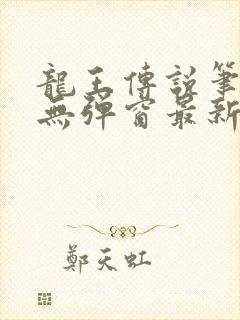 龍王傳說筆
無彈窗最新
鄭天虹